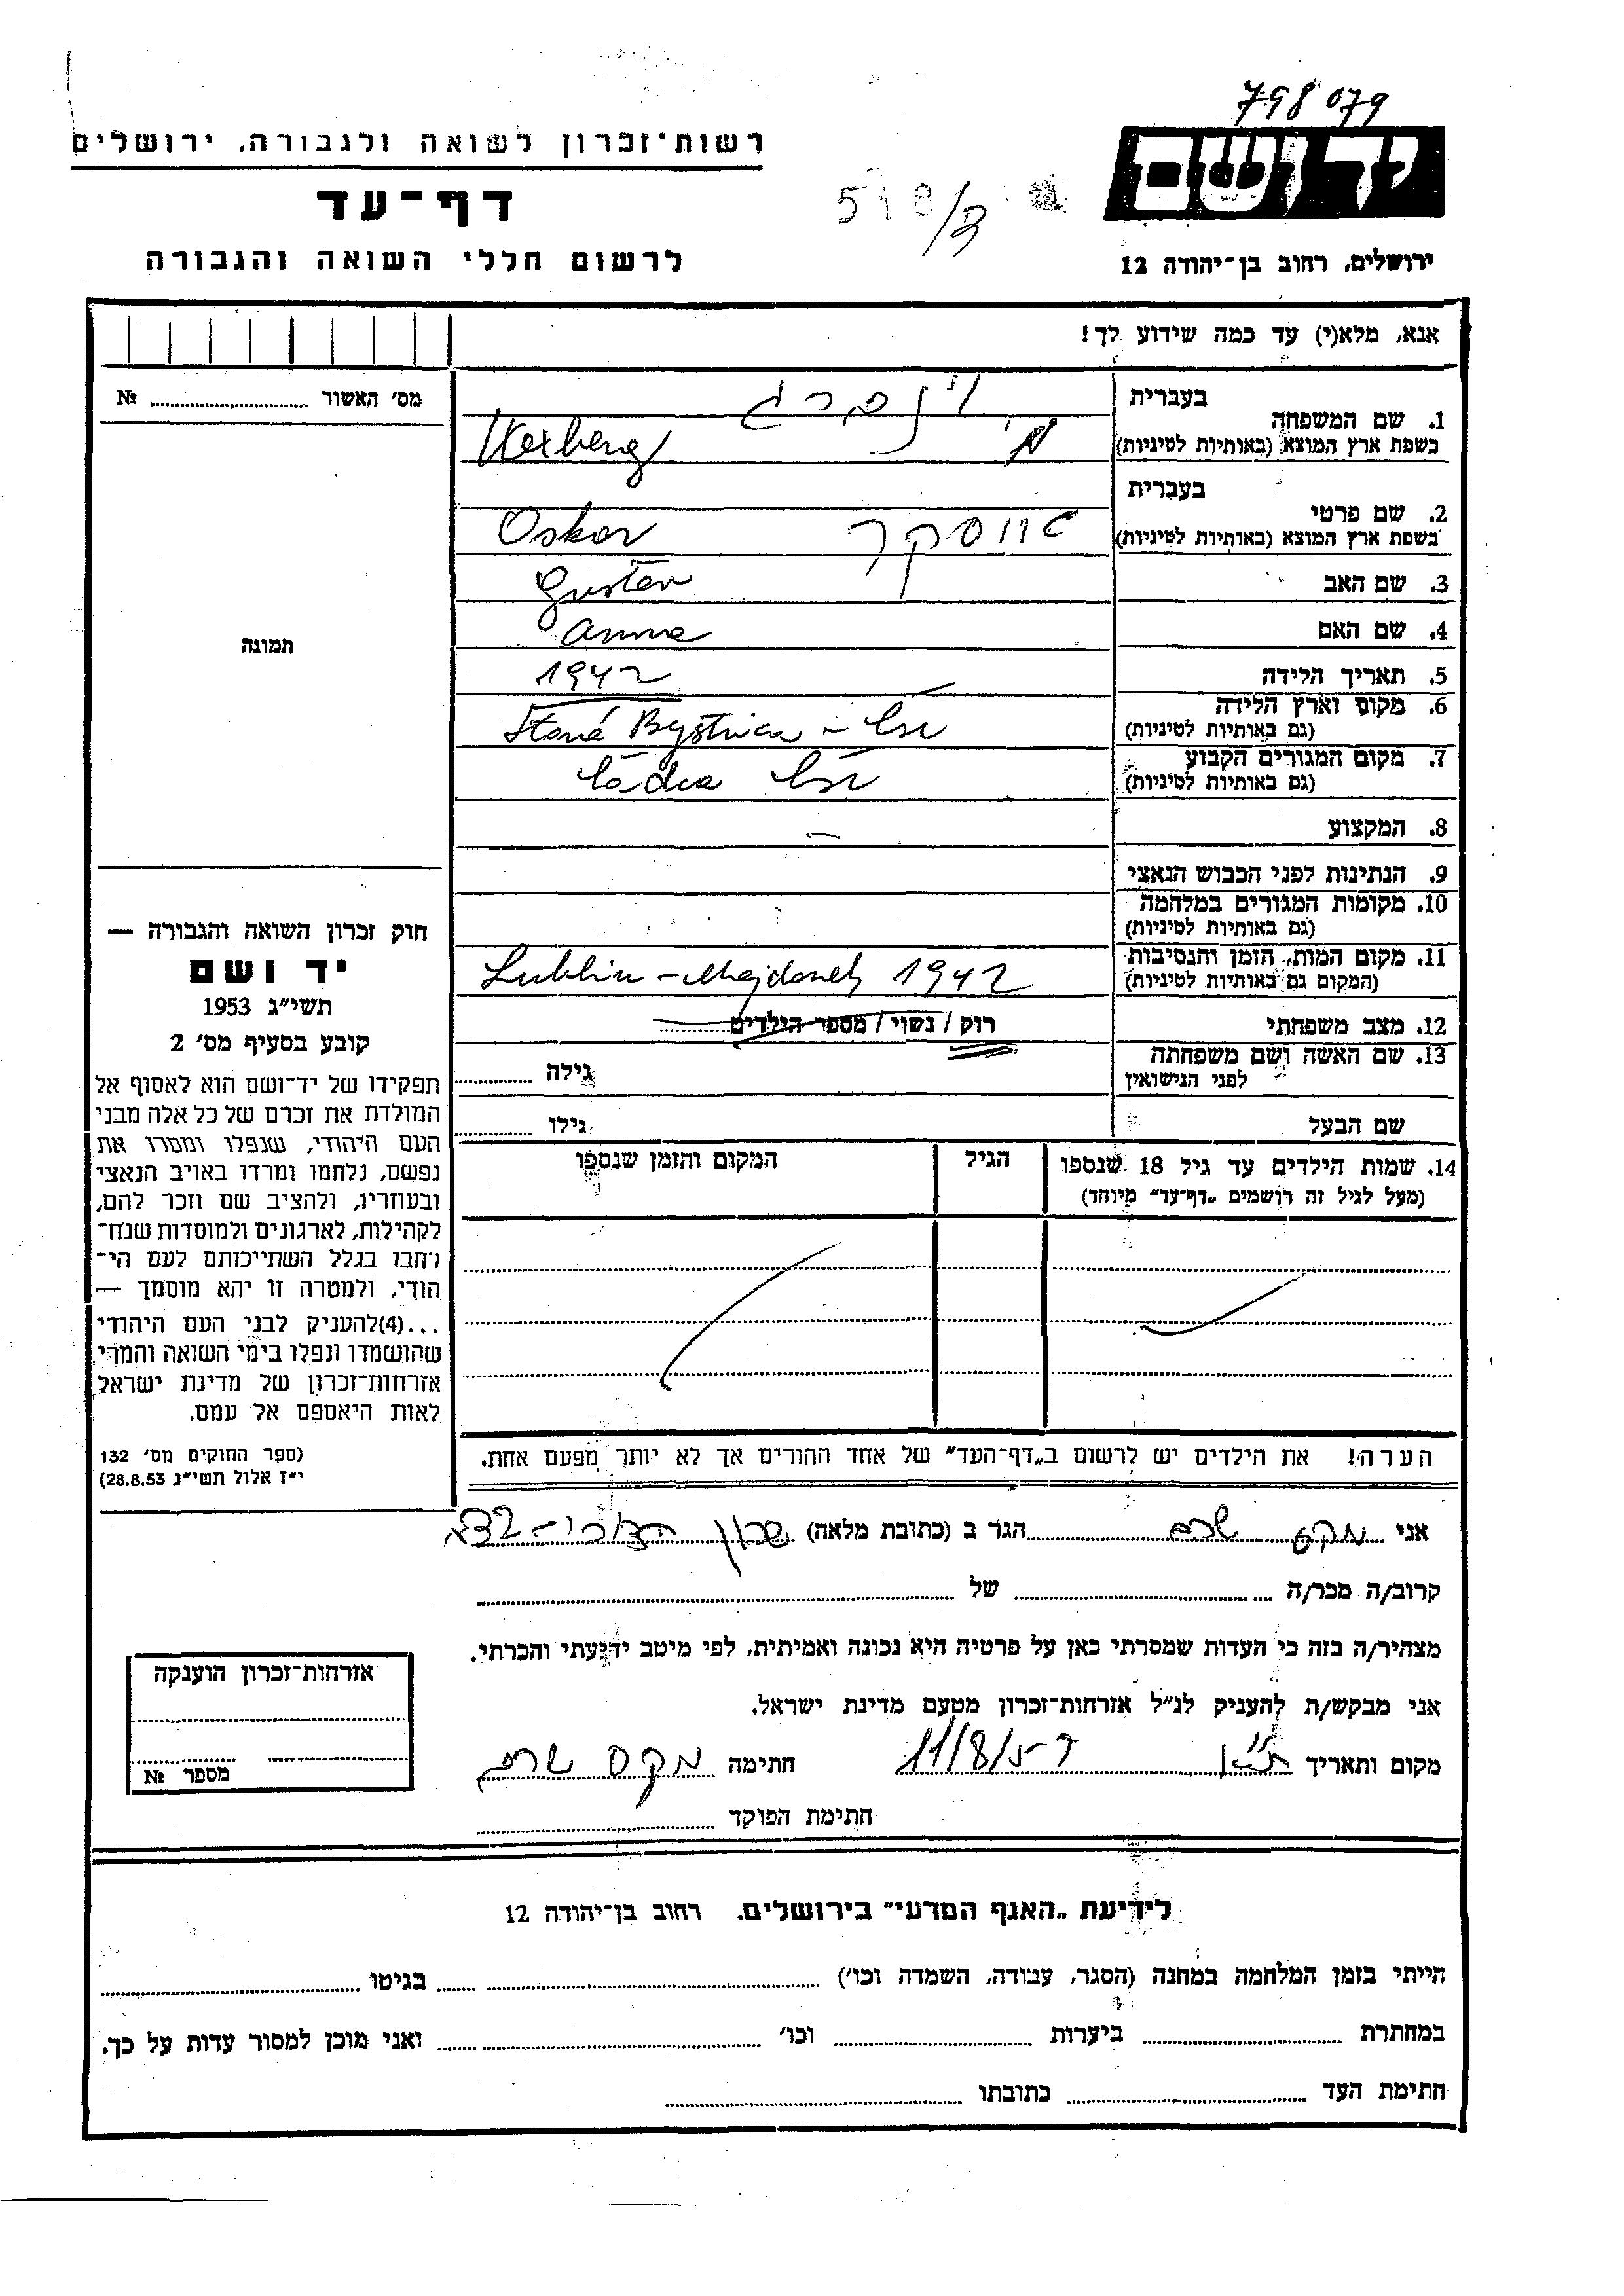 798079
רשות־זכרון לשואה ולגבורה, ירושלים
יד ושם
דף־עד
518/
לרשום חללי השואה והגבורה
ירושלים, רחוב בן־יהודה 12
אנא, מלא(י) עד כמה שידוע לך!
מס׳ האשור № 
בעברית
1. שם המשפחה
בשפת ארץ המוצא (באותיות לטיניות)
בעברית
2. שם פרטי
בשפת ארץ המוצא (באותיות לטיניות)
Oskar אוסקר
3. שם האב Gustav
4. שם האם Anna
5. תאריך הלידה 1942
6. מקום וארץ הלידה
(גם באותיות לטיניות)
Bystrica - Čsr
7. מקום המגורים הקבוע
(גם באותיות לטיניות)
Čadca Čsr
8. המקצוע —
9. הנתינות לפני הכבוש הנאצי
10. מקומות המגורים במלחמה
(גם באותיות לטיניות)
11. מקום המות, הזמן והנסיבות
(המקום גם באותיות לטיניות)
Lublin - Majdanek 1942
12. מצב משפחתי רוק / נשוי / מספר הילדים
13. שם האשה ושם משפחתה
לפני הנישואין
גילה
שם הבעל גילו
14. שמות הילדים עד גיל 18 שנספו
(מעל לגיל זה רושמים „דף־עד” מיוחד)
הגיל
המקום והזמן שנספו
הערה! את הילדים יש לרשום ב„דף־העד” של אחד ההורים אך לא יותר מפעם אחת.
תמונה
חוק זכרון השואה והגבורה —
יד ושם
תשי״ג 1953
קובע בסעיף מס׳ 2
תפקידו של יד־ושם הוא לאסוף אל
המולדת את זכרם של כל אלה מבני
העם היהודי, שנפלו ומסרו את
נפשם, נלחמו ומרדו באויב הנאצי
ובעוזריו, ולהציב שם וזכר להם,
לקהילות, לארגונים ולמוסדות שנח־
רחבו בגלל השתייכותם לעם הי־
הודי, ולמטרה זו יהא מוסמך —
...(4)להעניק לבני העם היהודי
שהושמדו ונפלו בימי השואה והמרי
אזרחות־זכרון של מדינת ישראל
לאות היאספם אל עמם.
(ספר החוקים מס׳ 132
י״ז אלול תשי״ג 28.8.53)
אני מקס הגר ב (כתובת מלאה)
קרוב/ה מכר/ה של
מצהיר/ה בזה כי העדות שמסרתי כאן על פרטיה היא נכונה ואמיתית, לפי מיטב ידיעתי והכרתי.
אני מבקש/ת להעניק לנ״ל אזרחות־זכרון מטעם מדינת ישראל.
מקום ותאריך 11/8/ חתימה מקס
חתימת הפוקד
אזרחות־זכרון הוענקה
מספר №
לידיעת „האגף המדעי” בירושלים, רחוב בן־יהודה 12
הייתי בזמן המלחמה במחנה (הסגר, עבודה, השמדה וכו׳) בגיטו
במחתרת ביערות וכו׳ ואני מוכן למסור עדות על כך.
חתימת העד כתובתו